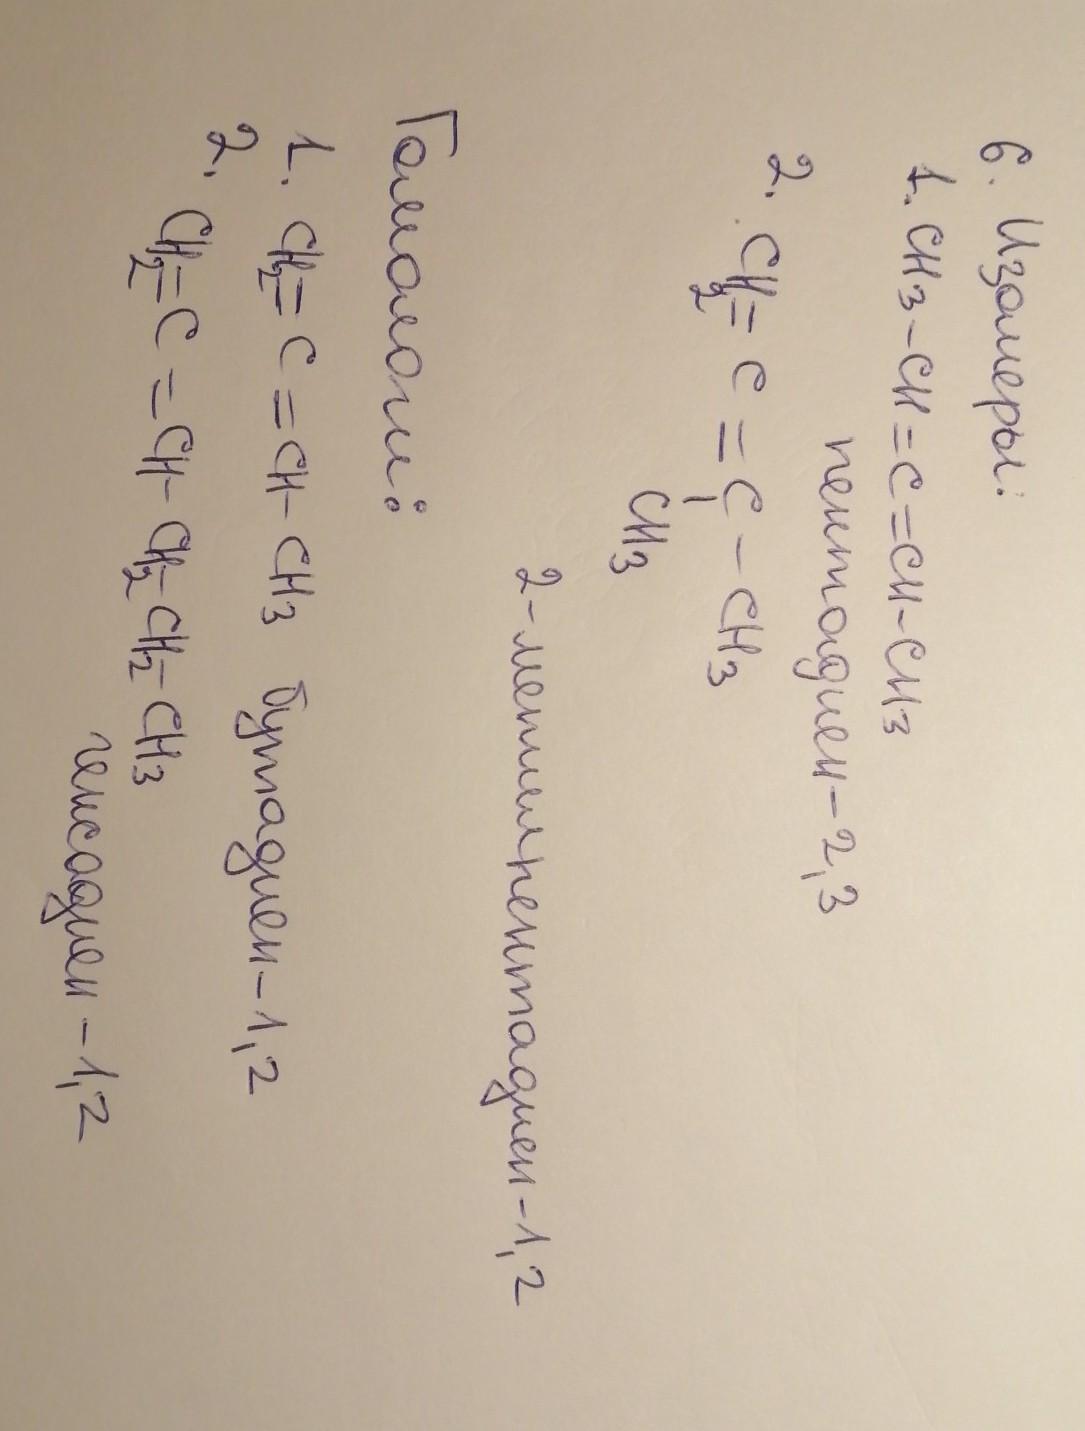 6. Изомеры:
1. CH3-CH=C=CH-CH3
пентадиен-2,3
2. CH2=C=C-CH3
CH3
2-метилпентадиен-1,2
Гомологи:
1. CH2=C=CH-CH3 бутадиен-1,2
2. CH2=C=CH-CH2-CH2-CH3
гексадиен-1,2